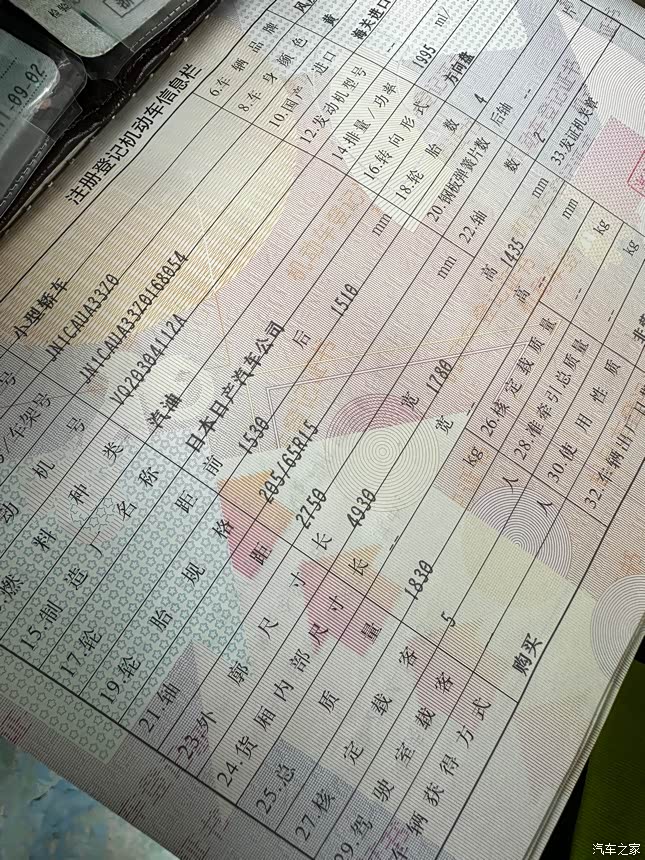 11.09.02
注册登记机动车信息栏
小型轿车
6.车辆品牌
JN1CAUA33Z0
8.车身颜色
/车架号 JN1CAUA33Z0168054
10.国产 进口
机号 VQ20304112A
12.发动机型号
燃料种类 汽油
14.排量/功率 1995 ml/
15.制造厂名称 日本日产汽车公司
16.转向形式 方向盘
17.轮距 前 1530 后 1510 mm
18.轮胎数 4
19.轮胎规格 205/65R15
20.钢板弹簧片数 后轴 --
21.轴距 2750 mm
22.轴数 2
23.外廓尺寸 长 4930 宽 1780 高 1435 mm
33.发证机关章
24.货厢内部尺寸 长 -- 宽 -- 高 -- mm
25.总质量 1830 kg
26.核定载质量 -- kg
27.核定载客 5 人
28.准牵引总质量 -- kg
29.驾驶室载客 -- 人
30.使用性质
车辆获得方式 购买
32.车辆出厂日期
汽车之家